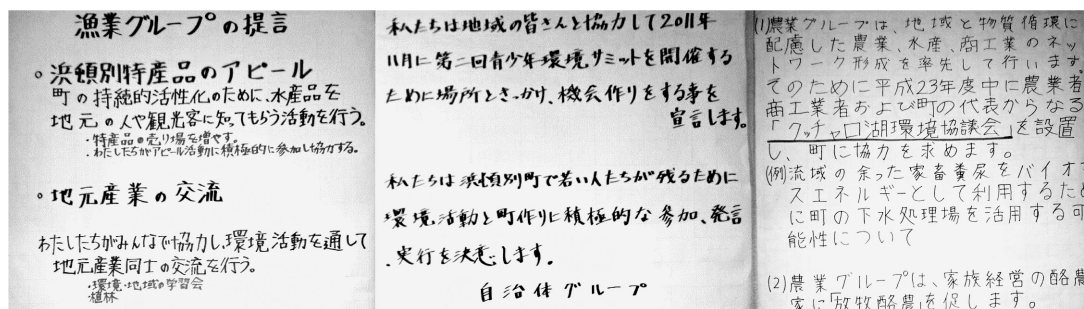 漁業グループの提言
○浜頓別特産品のアピール
町の持続的活性化のために、水産品を
地元の人や観光客に知ってもらう活動を行う。
・特産品の売り場を増やす。
・わたしたちがアピール活動に積極的に参加し協力する。
○地元産業の交流
わたしたちがみんなで協力し、環境活動を通して
地元産業同士の交流を行う。
・環境・地域の学習会
・植林
私たちは地域の皆さんと協力して2011年
11月に第二回青少年環境サミットを開催する
ために場所ときっかけ、機会作りをする事を
宣言します。
私たちは浜頓別町で若い人たちが残るために
環境活動と町作りに積極的な参加、発言
、実行を決意します。
自治体グループ
(1)農業グループは、地域と物質循環に
配慮した農業、水産、商工業のネッ
トワーク形成を率先して行います。
そのために平成23年度中に農業者
商工業者および町の代表からなる
「クッチャロ湖環境協議会」を設置
し、町に協力を求めます。
(例)流域の余った家畜糞尿をバイオ
スエネルギーとして利用するため
に町の下水処理場を活用する可
能性について
(2)農業グループは、家族経営の酪農
家に「放牧酪農」を促します。